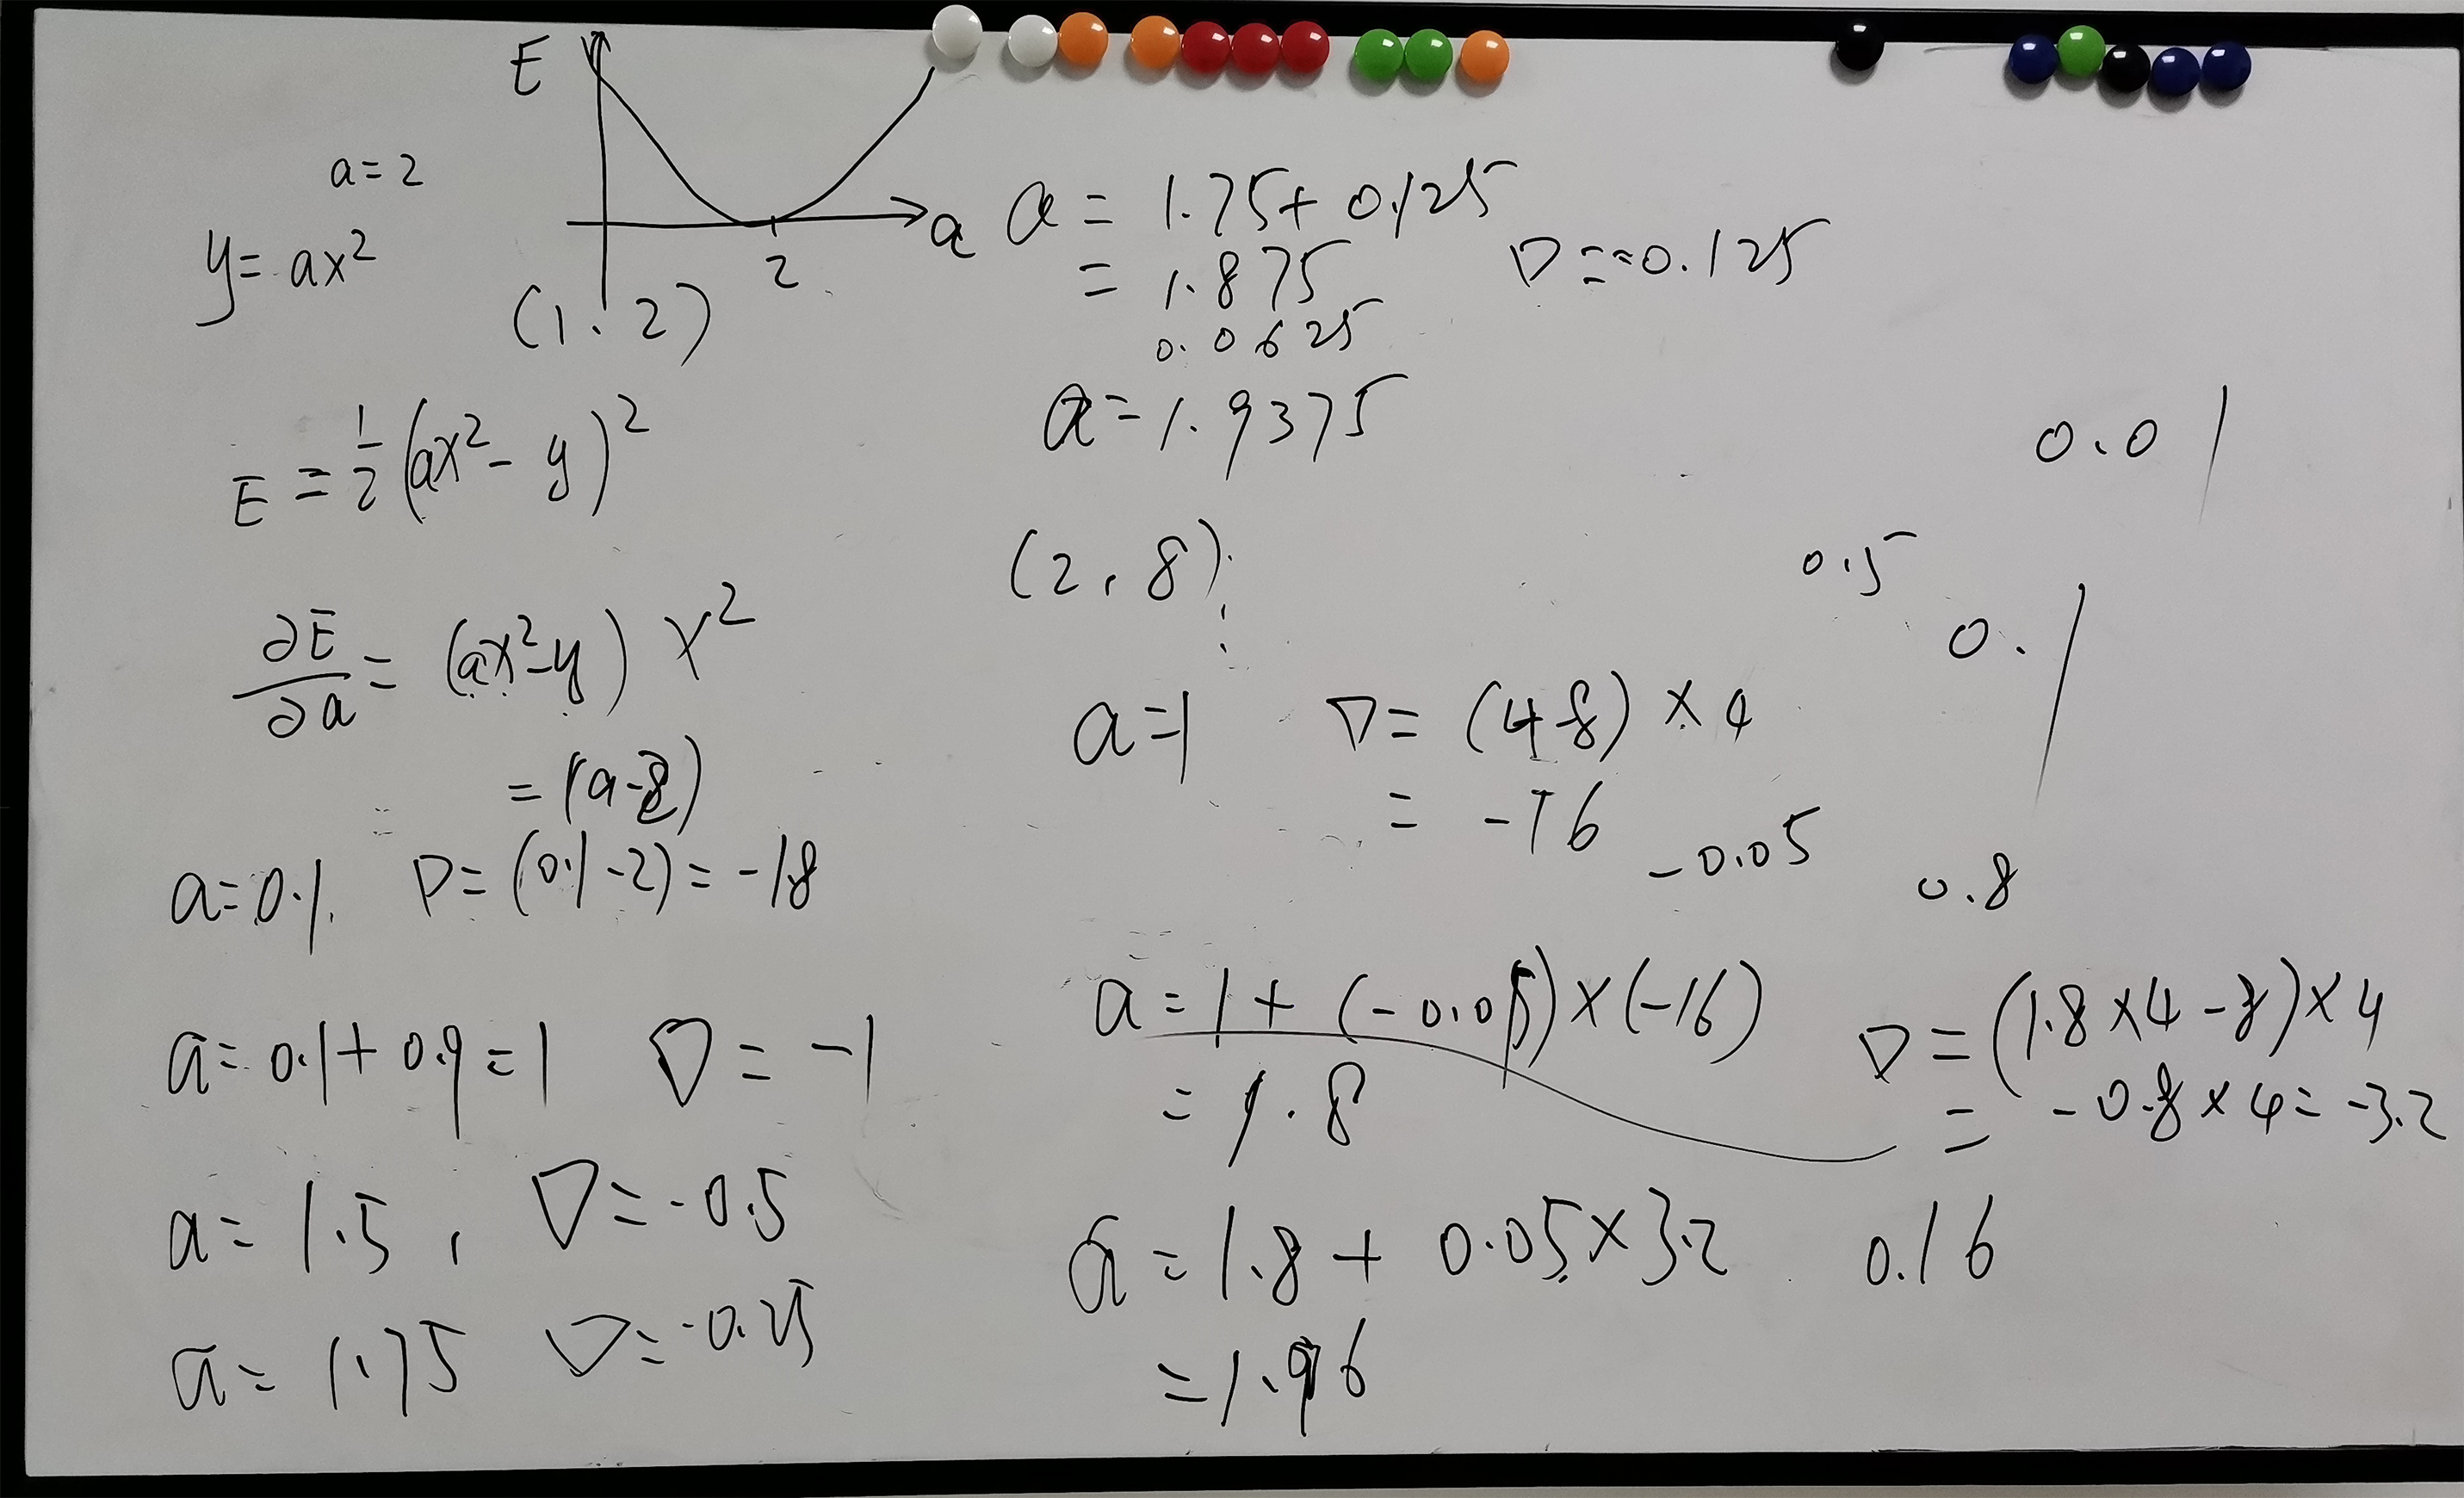 E
a=2
y= ax²
a
2
(1, 2)
E = ½(ax²- y)²
∂E/∂a = (ax²-y) x²
= (a-2)
a=0.1 ∇= (0.1-2)= -1.8
a= 0.1+0.9=1 ∇= -1
a= 1.5, ∇= -0.5
a= 1.75 ∇= -0.25
a = 1.75+ 0.125
= 1.875
∇ = -0.125
0.0625
a=1.9375
0.01
(2, 8)
0.5
0.1
a=1 ∇= (4-8) × 4
= -16
-0.05
0.8
a=1+(-0.05)×(-16)
= 1.8
∇=(1.8×4-8)×4
= -0.8×4= -3.2
a=1.8+0.05×3.2
0.16
=1.96